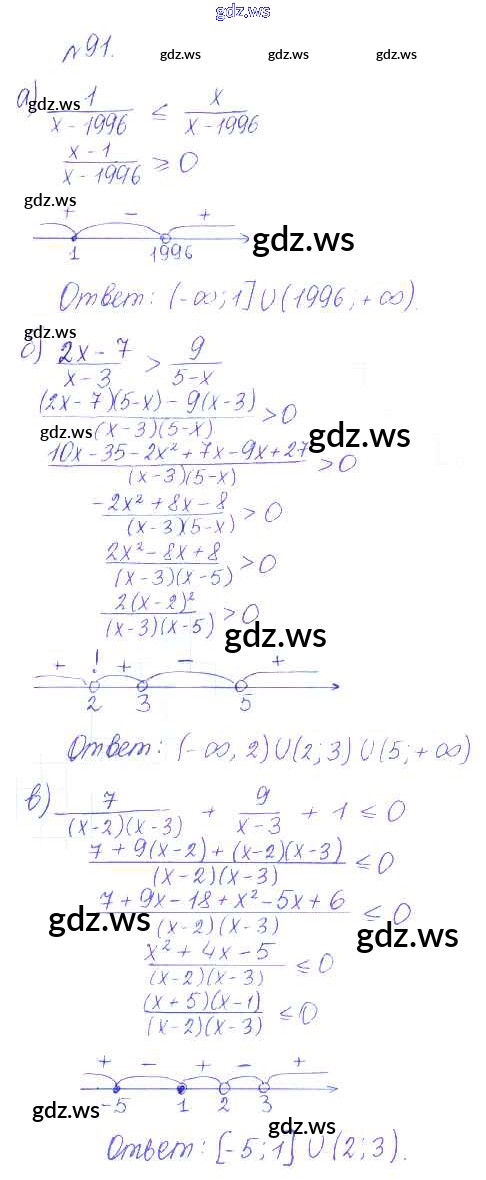 gdz.ws
№91.
gdz.ws gdz.ws gdz.ws
а) 1/(x - 1996) ≤ x/(x - 1996)
gdz.ws
(x - 1)/(x - 1996) ≥ 0
gdz.ws
+ - +
1 1996
gdz.ws
Ответ: (-∞; 1] ∪ (1996; +∞).
gdz.ws
б) (2x - 7)/(x - 3) > 9/(5 - x)
((2x - 7)(5 - x) - 9(x - 3))/((x - 3)(5 - x)) > 0
gdz.ws gdz.ws
(10x - 35 - 2x² + 7x - 9x + 27)/((x - 3)(5 - x)) > 0
(-2x² + 8x - 8)/((x - 3)(5 - x)) > 0
(2x² - 8x + 8)/((x - 3)(x - 5)) > 0
2(x - 2)²/((x - 3)(x - 5)) > 0
gdz.ws gdz.ws
+ ! + - +
2 3 5
Ответ: (-∞, 2) ∪ (2; 3) ∪ (5; +∞)
в) 7/((x - 2)(x - 3)) + 9/(x - 3) + 1 ≤ 0
(7 + 9(x - 2) + (x - 2)(x - 3))/((x - 2)(x - 3)) ≤ 0
(7 + 9x - 18 + x² - 5x + 6)/((x - 2)(x - 3)) ≤ 0
gdz.ws gdz.ws
(x² + 4x - 5)/((x - 2)(x - 3)) ≤ 0
((x + 5)(x - 1))/((x - 2)(x - 3)) ≤ 0
+ - + - +
-5 1 2 3
gdz.ws gdz.ws
Ответ: [-5; 1] ∪ (2; 3).